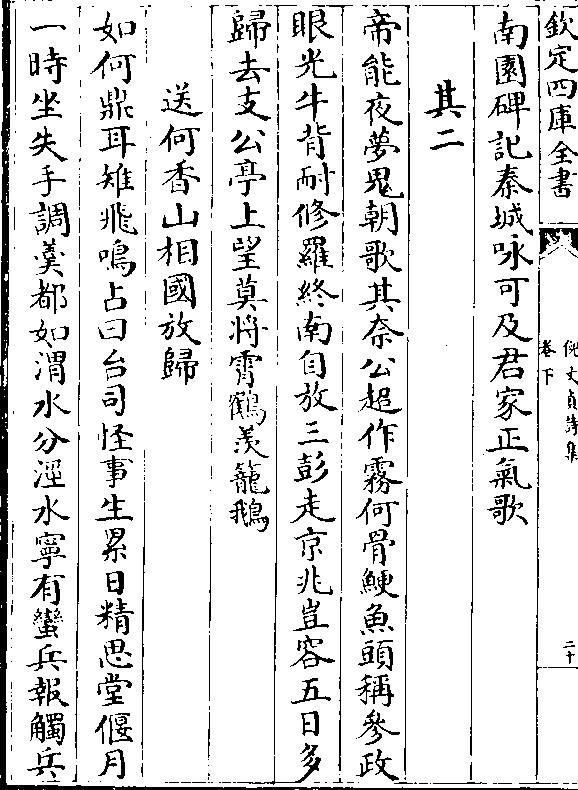 欽定四庫全書
倪文貞詩集
卷下
二十
南園碑記秦城咏可及君家正氣歌
其二
帝能夜夢鬼朝歌其奈公超作霧何骨鯁魚頭稱參政
眼光牛背耐修羅終南自放三彭走京兆豈容五日多
歸去支公亭上望莫將霄鶴羨籠鵝
送何香山相國放歸
如何鼎耳雉飛鳴占曰台司怪事生累日精思堂偃月
一時坐失手調羮都如渭水分涇水寧有蠻兵報觸兵